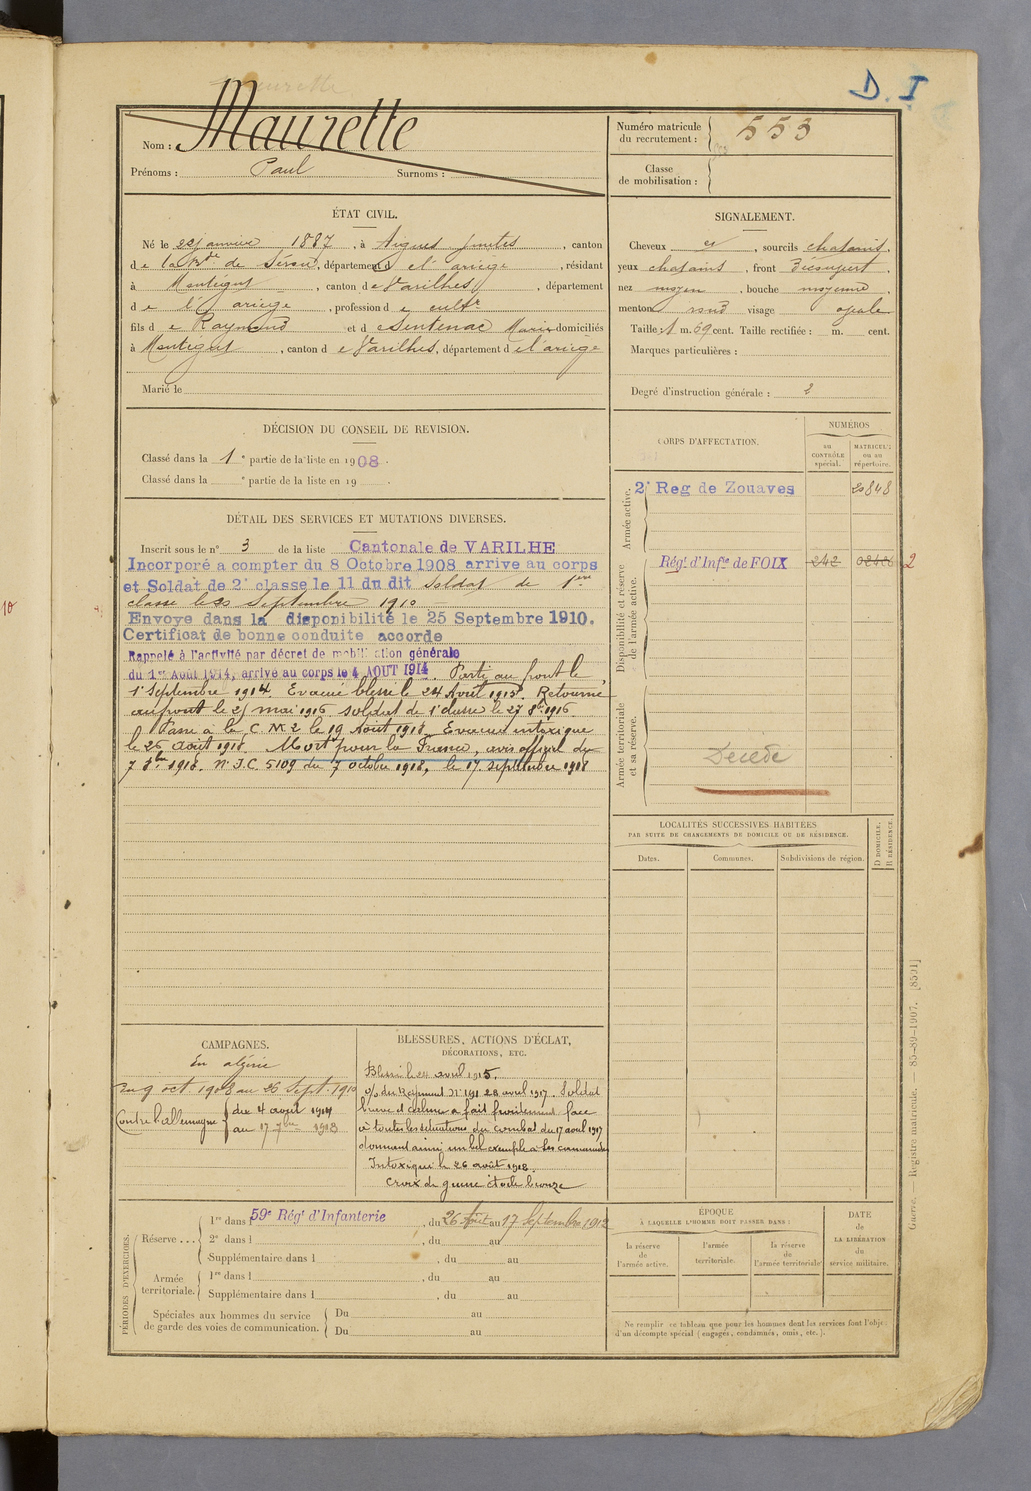 D. I
Maurette
Nom : Maurette
Prénoms : Paul Surnoms :
Numéro matricule du recrutement : 553
Classe de mobilisation :
ÉTAT CIVIL.
Né le 22 janvier 1887, à Aigues Juntes, canton
de La Bde de Sérou, département de l'ariège, résidant
à Montégut, canton de Varilhes, département
de l'ariège, profession de cultr
fils de Raymond et de Sentenac Marie domiciliés
à Montégut, canton de Varilhes, département de l'ariège
Marié le
SIGNALEMENT.
Cheveux et, sourcils chatains,
yeux chatains, front découvert,
nez moyen, bouche moyenne,
menton rond visage ovale
Taille : 1 m. 69 cent. Taille rectifiée : m. cent.
Marques particulières :
Degré d'instruction générale : 2
DÉCISION DU CONSEIL DE REVISION.
Classé dans la 1e partie de la liste en 1908.
Classé dans la e partie de la liste en 19 .
DÉTAIL DES SERVICES ET MUTATIONS DIVERSES.
Inscrit sous le n° 3 de la liste Cantonale de VARILHE
Incorporé a compter du 8 Octobre 1908 arrive au corps
et Soldat de 2e classe le 11 du dit Soldat de 1ere
classe le 20 Septembre 1910
Envoye dans la disponibilité le 25 Septembre 1910.
Certificat de bonne conduite accorde
Rappelé à l'activité par décret de mobilisation générale
du 1er Août 1914, arrivé au corps le 4 AOUT 1914. Parti au front le
1 Septembre 1914. Evacué blessé le 24 Avril 1915. Retourné
au front le 25 mai 1916. soldat de 1e classe le 27 8bre 1916.
Passé à la C M 2 le 19 Aout 1918. Evacué intoxiqué
le 26 août 1918. Mort pour la France, avis officiel du
7 8bre 1918. N° J.C. 5109 du 7 octobre 1918, le 17 septembre 1918
CORPS D'AFFECTATION.
NUMÉROS
au CONTRÔLE spécial.
MATRICULE ou au répertoire.
Armée active.
2e Reg de Zouaves 20848
Disponibilité et réserve de l'armée active.
Régt d'Infie de FOIX 242 2
Armée territoriale et sa réserve.
Décédé
LOCALITÉS SUCCESSIVES HABITÉES
PAR SUITE DE CHANGEMENTS DE DOMICILE OU DE RÉSIDENCE.
Dates. Communes. Subdivisions de région. D DOMICILE. R RÉSIDENCE.
CAMPAGNES.
En algérie
Du 9 oct. 1908 au 25 Sept. 1910
Contre l'allemagne du 4 août 1914
au 17 7bre 1918
BLESSURES, ACTIONS D'ÉCLAT,
DÉCORATIONS, ETC.
Blessé le 24 avril 1915.
o/. du Régiment N° 191 28 avril 1917. Soldat
brave et calme a fait froidement face
à toutes les situations du combat du 17 avril 1917
donnant ainsi un bel exemple à ses camarades
Intoxiqué le 26 août 1918.
Croix de guerre étoile bronze
PÉRIODES D'EXERCICES.
Réserve ... 1re dans l 59e Régt d'Infanterie, du 26 Août au 17 Septembre 1912
2e dans l , du au
Supplémentaire dans l , du au
Armée territoriale. 1re dans l , du au
Supplémentaire dans l , du au
Spéciales aux hommes du service de garde des voies de communication. Du au
Du au
ÉPOQUE
À LAQUELLE L'HOMME DOIT PASSER DANS :
la réserve de l'armée active.
l'armée territoriale.
la réserve de l'armée territoriale
DATE de LA LIBÉRATION du service militaire.
Ne remplir ce tableau que pour les hommes dont les services font l'objet
d'un décompte spécial (engagés, condamnés, omis, etc.).
Guerre. — Registre matricule. — 85-89-1907. [8591]
10